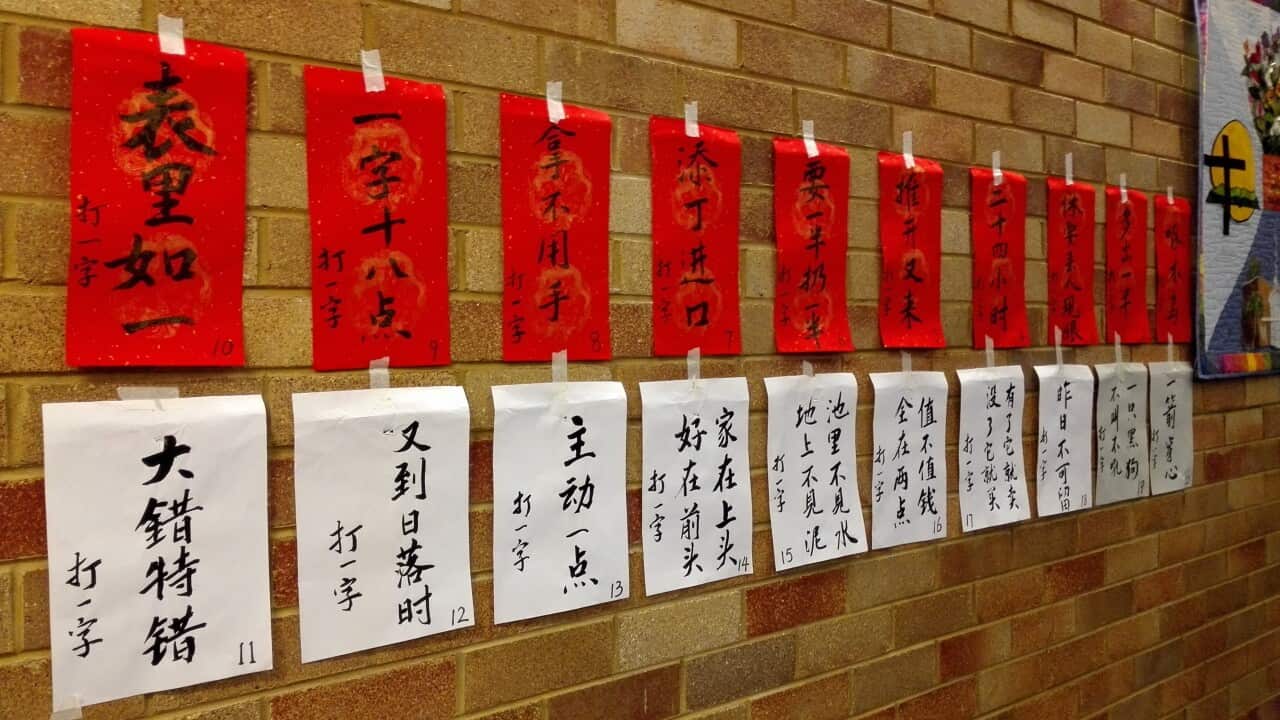 表里如一
打一字
10
一字十八点
打一字
9
拿不用手
打一字
8
添丁进口
打一字
7
要一半扔一半
打一字
推开又来
打一字
二十四小时
打一字
休要丢人现眼
打一字
多出一半
打一字
大错特错
打一字
11
又到日落时
打一字
12
主动一点
打一字
13
家在上头
好在前头
打一字
14
池里不见水
地上不见泥
打一字
15
值不值钱
全在两点
打一字
16
有了它就卖
没了它就买
打一字
17
昨日不可留
打一字
18
一只黑狗
不叫不吼
打一字
19
一箭穿心
打一字